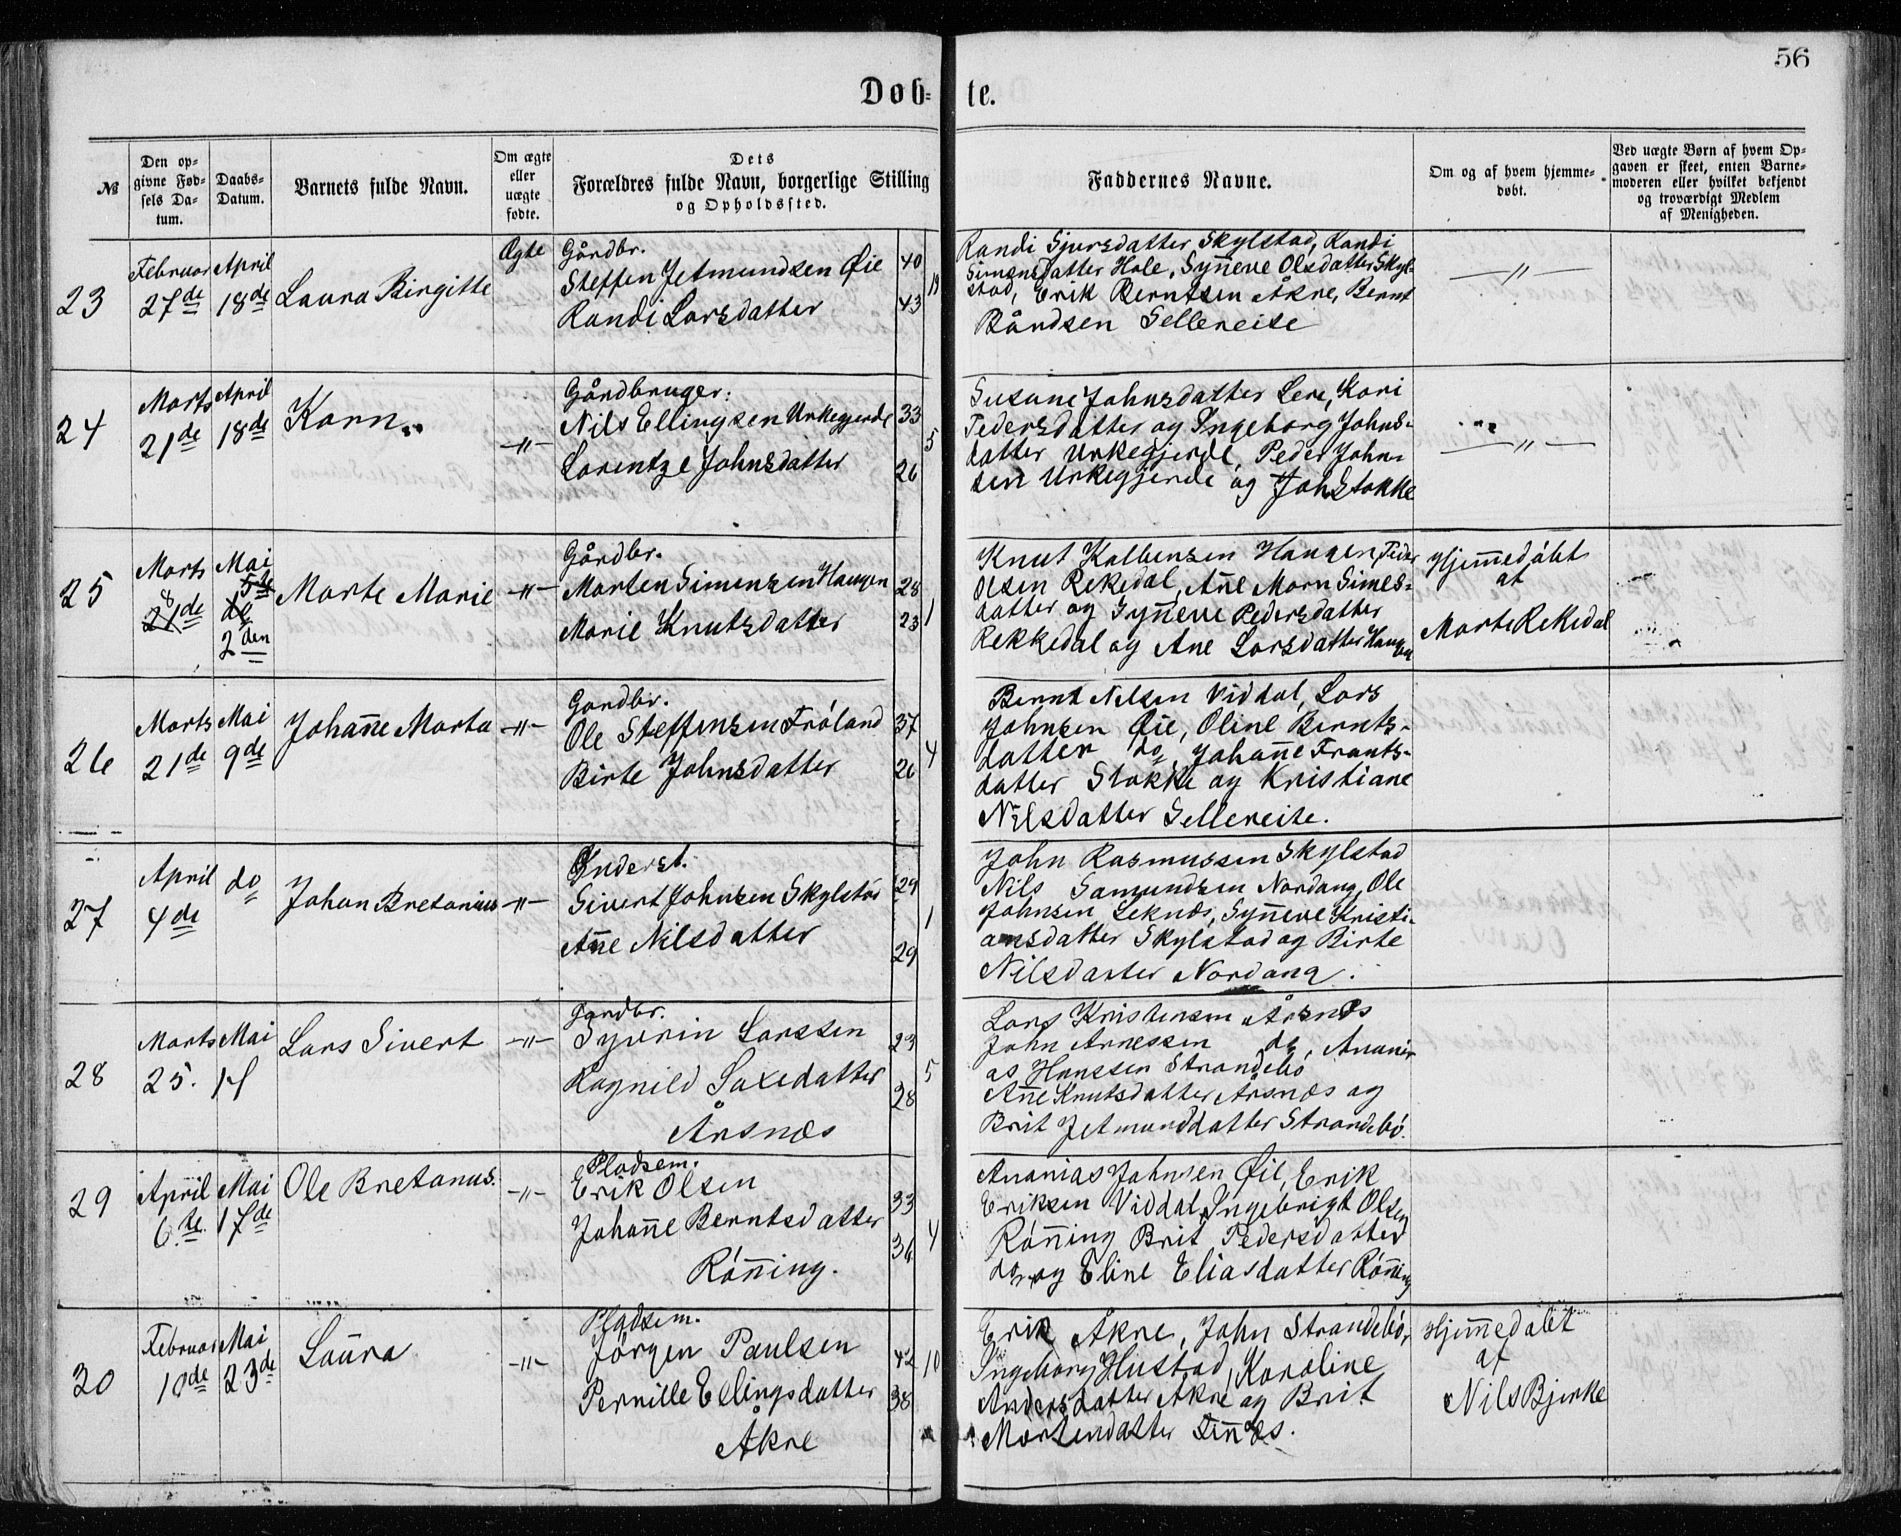 56
Døb- te.
№
Den opgivne Fødsels Datum.
Daabs-Datum.
Barnets fulde Navn.
Om ægte eller uægte fødte.
Dets Forældres fulde Navn, borgerlige Stilling og Opholdssted.
Faddernes Navne.
Om og af hvem hjemmedøbt.
Ved uægte Børn af hvem Opgaven er skeet, enten Barnemoderen eller hvilket bekjendt og troværdigt Medlem af Menigheden.
23
Februar
27de
April
18de
Laura Birgitte
Ægte
Gårdbr.
Steffen Jetmundsen Øie 40
Randi Larsdatter 43
Randi Sjursdatter Skylstad, Randi
Simensdatter Hole, Syn̄eve Olsdatter Skyl-
stad, Erik Berntsen Åkre, Bernt
Bårdsen Selleneise
—"—
24
Marts
21de
April
18de
Karn
—"—
Gårdbruger.
Nils Ellingsen Urkegjerde 33
5
Lorentze Johnsdatter 26
Susane Johnsdatter Lere, Kari
Pedersdatter og Ingeborg Johns-
datter Urkegjerde, Peder John-
sen Urkegjerde og Joh Stokke
—"—
25
Marts
8
21de
Mai
5te
do
2den
Marte Marie
—"—
Gårdbr.
Marten Simensen Haugen 28
1
Marie Knutsdatter 23
Knut Kolbensen Haugen, Peder
Olsen Rekedal, An̄e Marn Simes-
datter og Syn̄eve Pedersdatter
Rekkedal og Ane Larsdatter Haugen
Hjem̄edøbt
af
Marte Rekedal
26
Marts
21de
Mai
9de
Johan̄e Marta
—"—
Gardbr.
Ole Steffensen Frøland 37
4
Birte Johnsdatter 26
Bernt Nilsen Viddal, Lars
Johnsen Øie, Oline Bernts-
datter do, Johan̄e Frants-
datter Stokke og Kristiane
Nilsdatter Selleneise.
27
April
4de
do
Johan Bretanius
—"—
Inderst.
Sivert Johnsen Skylstad 29
1
An̄e Nilsdatter 29
John Rasmussen Skylstad
Nils Samundsen Nordang, Ole
Johnsen Leknæs, Syn̄eve Kristi-
ansdatter Skylstad og Birte
Nilsdatter Nordang.
28
Marts
25.
Mai
17
Lars Sivert
—"—
Gardbr.
Syvrin Larssen 23
5
Ragnild Saxedatter 28
Årsnæs
Lars Kristensen Årsnæs
John Arnessen do, Anani-
as Hanssen Strandebø
An̄e Knutsdatter Årsnæs og
Brit Jetmunddatter Strandebø.
29
April
6te
Mai
17de
Ole Bretanus.
—"—
Pladsem.
Erik Olsen 33
4
Johan̄e Berntsdatter 36
Røn̄ing.
Ananias Johnsen Øie, Erik
Eriksen Viddal, Ingebrigt Olsen
Røn̄ing Brit Pedersdatter
do og Eline Eliasdatter Røn̄ing
30
Februar
10de
Mai
23de
Laura
—"—
Pladsem.
Jørgen Paulsen 42
10
Pernille Ellingsdatter 38
Åkre
Erik Åkre, John Strandebø,
Ingeborg Hustad, Karoline
Andersdatter Åkre og Brit
Martendatter Fin̄æs.
Hjem̄edøbt
af
Nils Bjerke